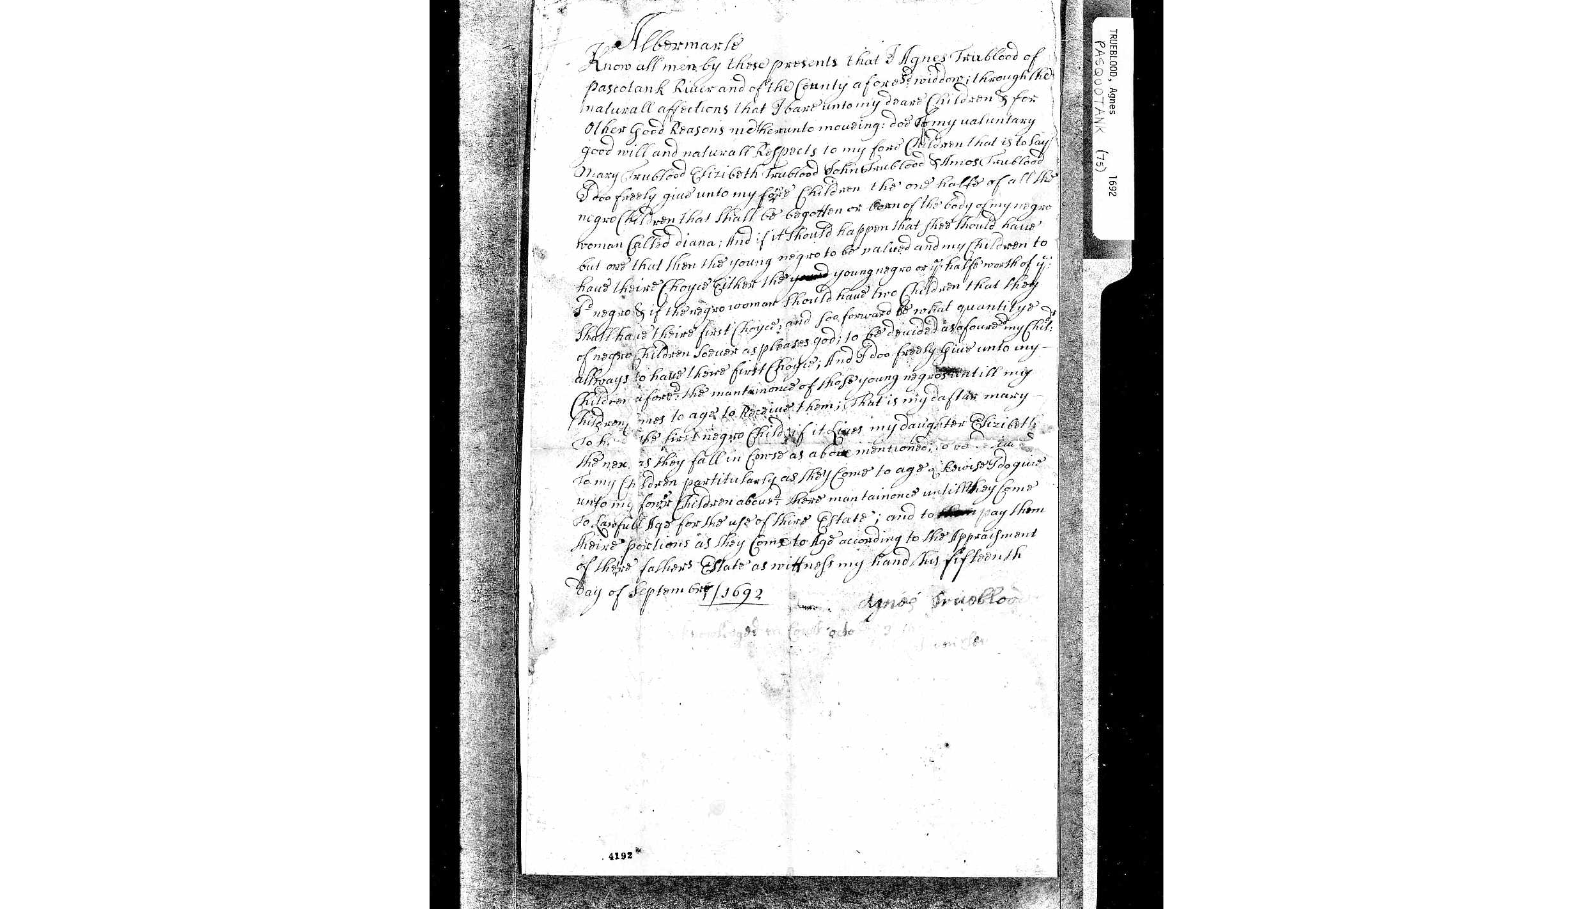 Albermarle
Know all men by these presents that I Agnes Trublood of
pascotank River and of the County afores:d widdow; through the
naturall affections that I bare unto my deare Children & for
Other Good Reasons me thereunto moveing: doe of my valuntary
good will and naturall Respects to my fore Children that is to say
Mary Trublood Elizibeth Trublood John Trublood & Amos Trublood
I doo freely give unto my fore Children the one halfe of all the
negro Children that shall be begotten or born of the body of my negro
woman Called diana; And if it should happen that shee should have
but one that then the young negro to be valued and my Children to
have theire Choyce Either the young negro or ye halfe worth of ye:
sd negro & if the negro woman should have two Children that they
shall have theire first Choyce; and soo forward be what quantitye
of negro Children soever as pleases god; to be devided as afoure sd my Chil:
allways to have theire first Choyce; And I doo freely Give unto my
Children afores:d the mantainonce of those young negros untill my
Children comes to age to Receive them; That is my dafter mary
To the first negro Child if it Lives my daughter Elizibeth
the nex as they fall in Corse as above mentioned;
To my Children partitularly as they Come to age Likewise I do give
unto my fore Children aboves:d there mantainonce untill they Come
To Lawfull Age for the use of thire Estate; and to pay them
theire portions as they Come to Age according to the Appraisment
of there fathers Estate as wittness my hand this fifteenth
Day of September / 1692
Agnes Trueblood
in Court
. 4192
TRUEBLOOD, Agnes 1692
PASQUOTANK (75)